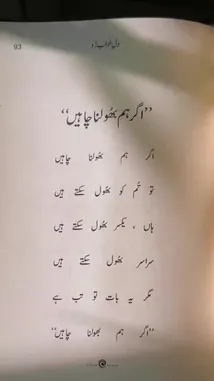 93
’’اگر ہم بھولنا چاہیں‘‘
اگر ہم بھولنا چاہیں
تو تم کو بھول سکتے ہیں
ہاں ، یکسر بھول سکتے ہیں
سراسر بھول سکتے ہیں
مگر یہ بات تو تب ہے
’’اگر ہم بھولنا چاہیں‘‘